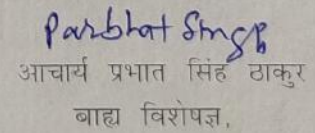 Parbhat Singh
आचार्य प्रभात सिंह ठाकुर
बाह्य विशेषज्ञ.